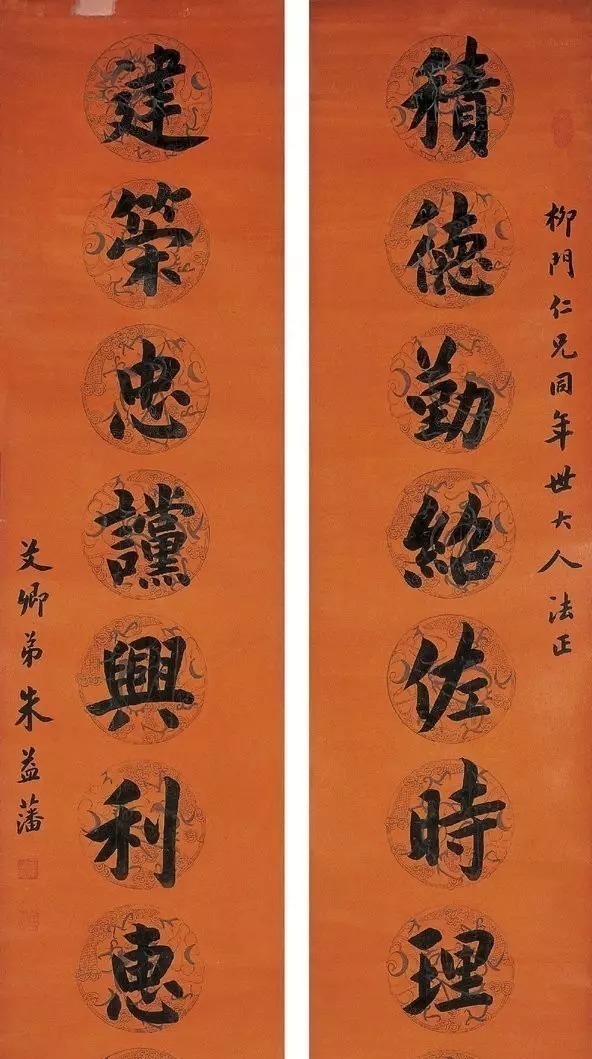 柳門仁兄同年世大人法正
積德勤紹佐時理
建策忠讜興利惠
艾卿弟朱益藩